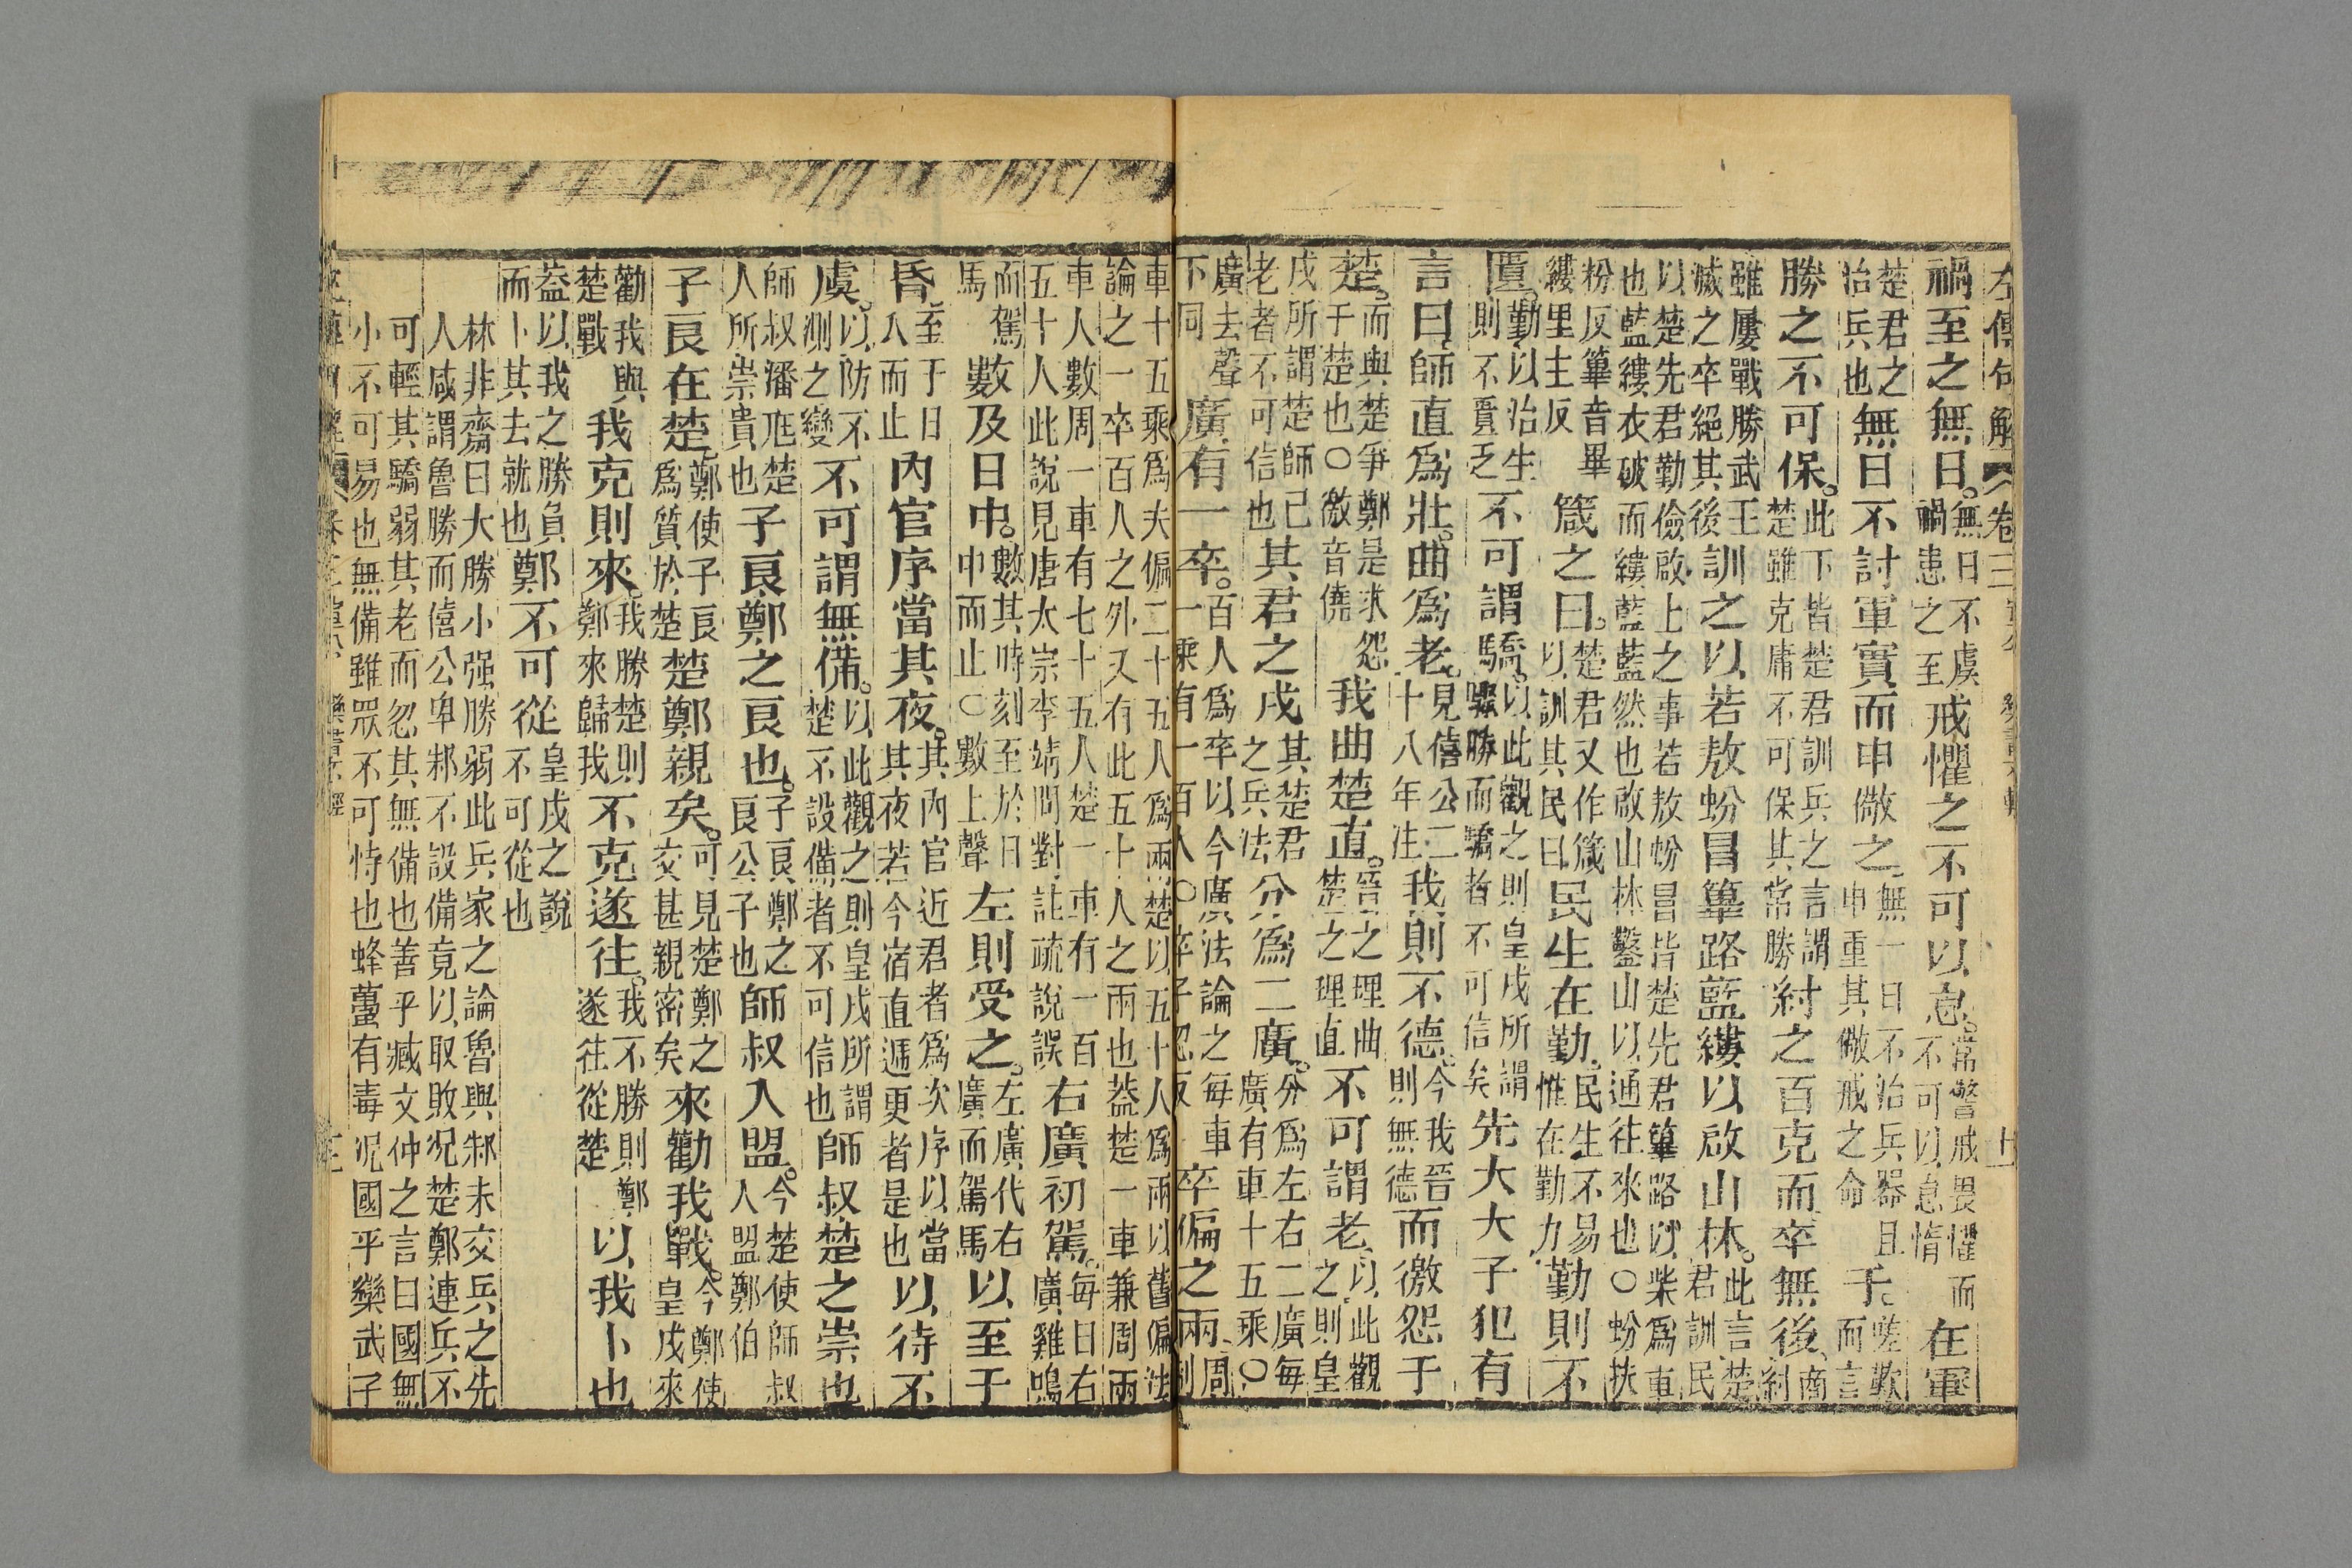 左傳句解 卷三 宣公 十一
禍至之無日。無日不虞禍患之至戒懼之不可以怠。常警戒畏懼而不可以怠惰在軍
楚君之治兵也無日不討軍實而申儆之。無一日不治兵器且申重其儆戒之命于嗟歎而言
勝之不可保。此下皆楚君訓兵之言謂楚雖克庸不可保其常勝紂之百克而卒無後、商紂
雖屢戰勝武王滅之卒絕其後訓之以若敖蚡冒篳路藍縷以啟山林。此言楚君訓民
以楚先君勤儉啟上之事若敖蚡冒皆楚先君篳路以柴為車也藍縷衣破而縷藍藍然也啟山林鑿山以通往來也○蚡扶
粉反篳音畢縷里主反箴之曰。楚君又作箴以訓其民曰民生在勤。民生不易惟在勤力勤則不
匱。勤以治生則不匱乏不可謂驕。以此觀之則皇戌所謂驟勝而驕者不可信矣先大夫子犯有
言曰、師直為壯。曲為老。見僖公二十八年注我則不德、今我晉則無德而徼怨于
楚。而與楚爭鄭是求怨于楚也○徼音僥我曲楚直。晉之理曲楚之理直不可謂老、以此觀之則皇
戌所謂楚師已老者不可信也其君之戎其楚君之兵法分為二廣。分為左右二廣每廣有車十五乘○
廣去聲下同廣有一卒。百人為卒以今廣法論之每車一乘有一百人○卒子忽反卒偏之兩、周制
車十五乘為夫偏二十五人為兩楚以五十人為兩以舊偏法論之一卒百人之外又有此五十人之兩也葢楚一車兼周兩
車人數周一車有七十五人楚一車有一百五十人此說見唐太宗李靖問對註疏說誤右廣初駕。每日右廣雞鳴
而駕馬數及日中。數其時刻至於日中而止○數上聲左則受之。左廣代右廣而駕馬以至于
昏。至于日入而止內官序當其夜。其內官近君者為次序以當其夜若今宿直遞更者是也以待不
虞。以防不測之變不可謂無備。以此觀之則皇戌所謂楚不設備者不可信也師叔楚之崇也
師叔潘尫楚人所崇貴也子良鄭之良也。子良鄭之良公子也師叔入盟。今楚使師叔入盟鄭伯
子良在楚。鄭使子良為質於楚楚鄭親矣。可見楚鄭之交甚親密矣來勸我戰。今鄭使皇戌來
勸我與楚戰我克則來。我勝楚則鄭來歸我不克遂往。我不勝則鄭遂往從楚以我卜也
葢以我之勝負而卜其去就也鄭不可從皇戌之說不可從也
林非齋曰大勝小强勝弱此兵家之論魯與邾未交兵之先人咸謂魯勝而僖公卑邾不設備竟以取敗况楚鄭連兵不
可輕其驕弱其老而忽其無備也善乎臧文仲之言曰國無小不可易也無備雖眾不可恃也蜂蠆有毒况國乎欒武子